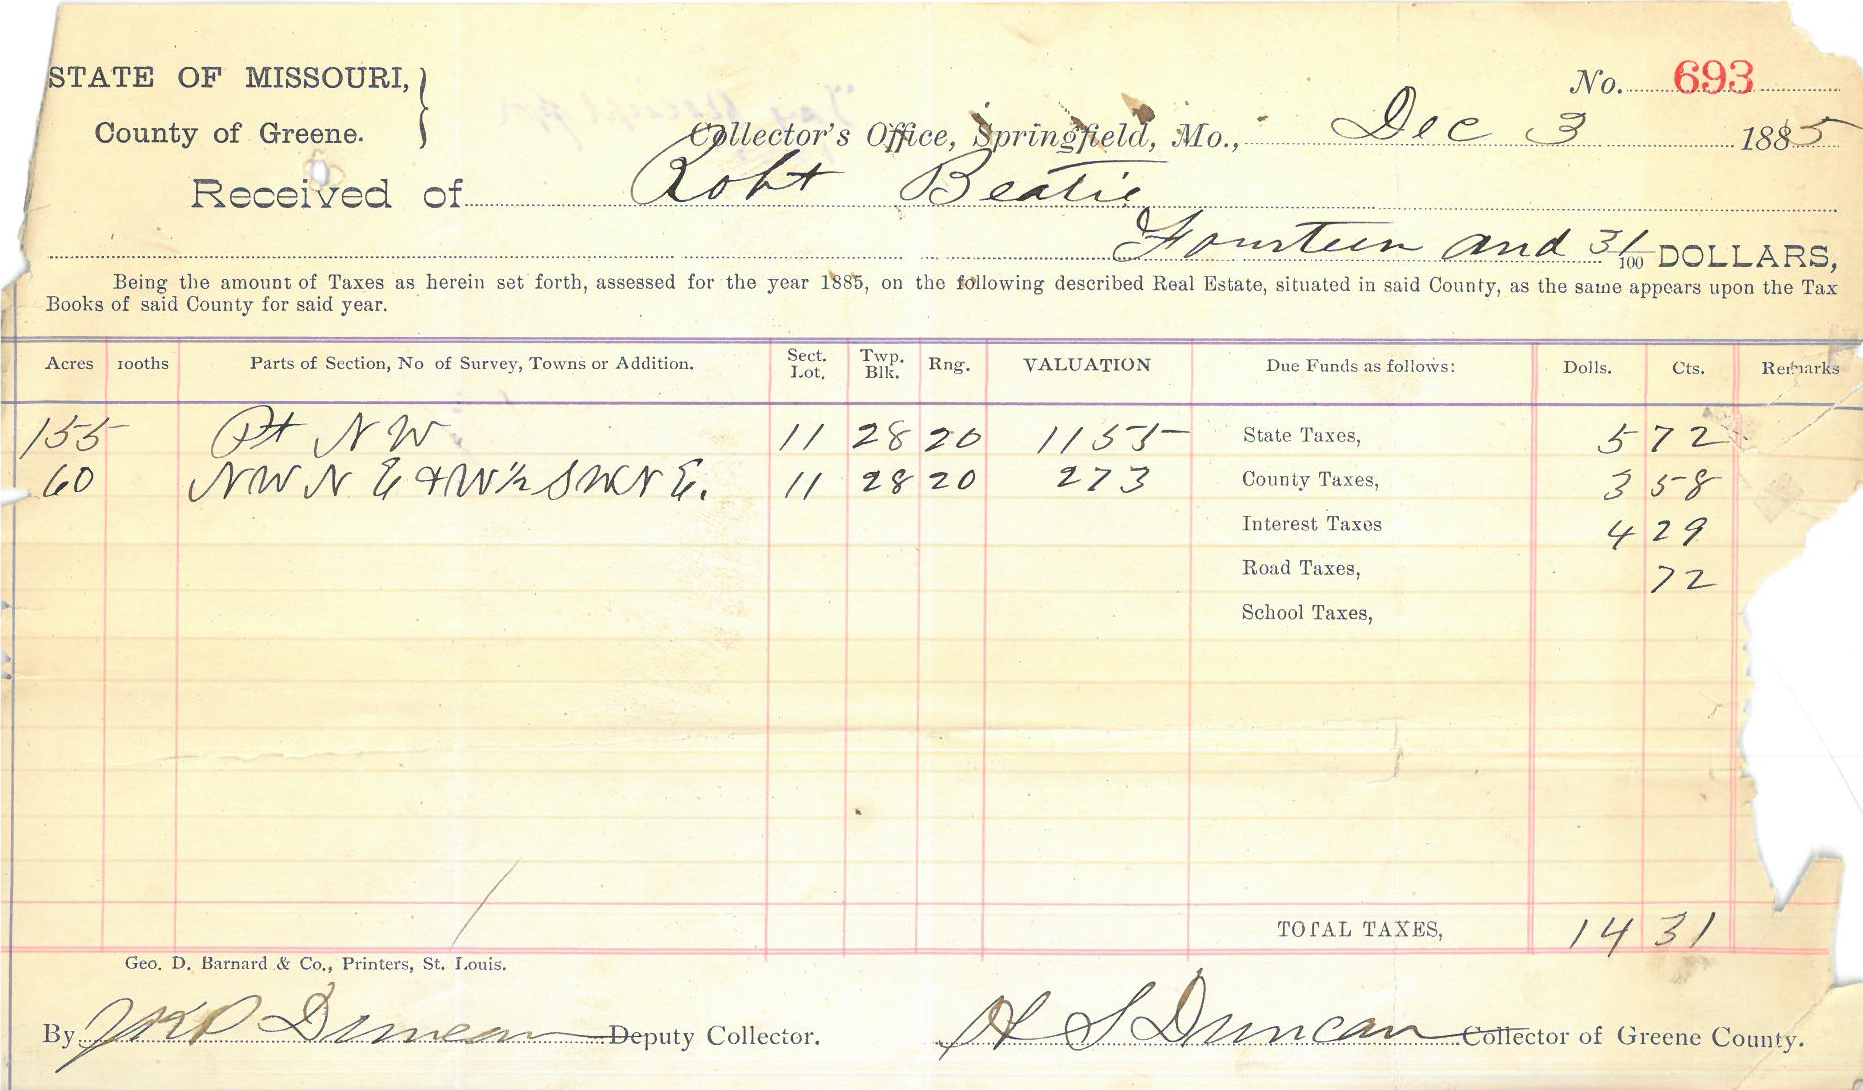 STATE OF MISSOURI,
County of Greene.
No. 693
Collector's Office, Springfield, Mo., Dec 3 1885
Received of Robt Beatie
Fourteen and 31/100 DOLLARS,
Being the amount of Taxes as herein set forth, assessed for the year 1885, on the following described Real Estate, situated in said County, as the same appears upon the Tax
Books of said County for said year.
Acres 100ths Parts of Section, No of Survey, Towns or Addition. Sect. Lot. Twp. Blk. Rng. VALUATION Due Funds as follows: Dolls. Cts. Remarks
155 Pt N W 11 28 20 1155 State Taxes, 5 72
60 NW N E & W ½ S W N E. 11 28 20 273 County Taxes, 3 58
Interest Taxes 4 29
Road Taxes, 72
School Taxes,
TOTAL TAXES, 14 31
Geo. D. Barnard & Co., Printers, St. Louis.
By JKP Duncan Deputy Collector. H S Duncan Collector of Greene County.